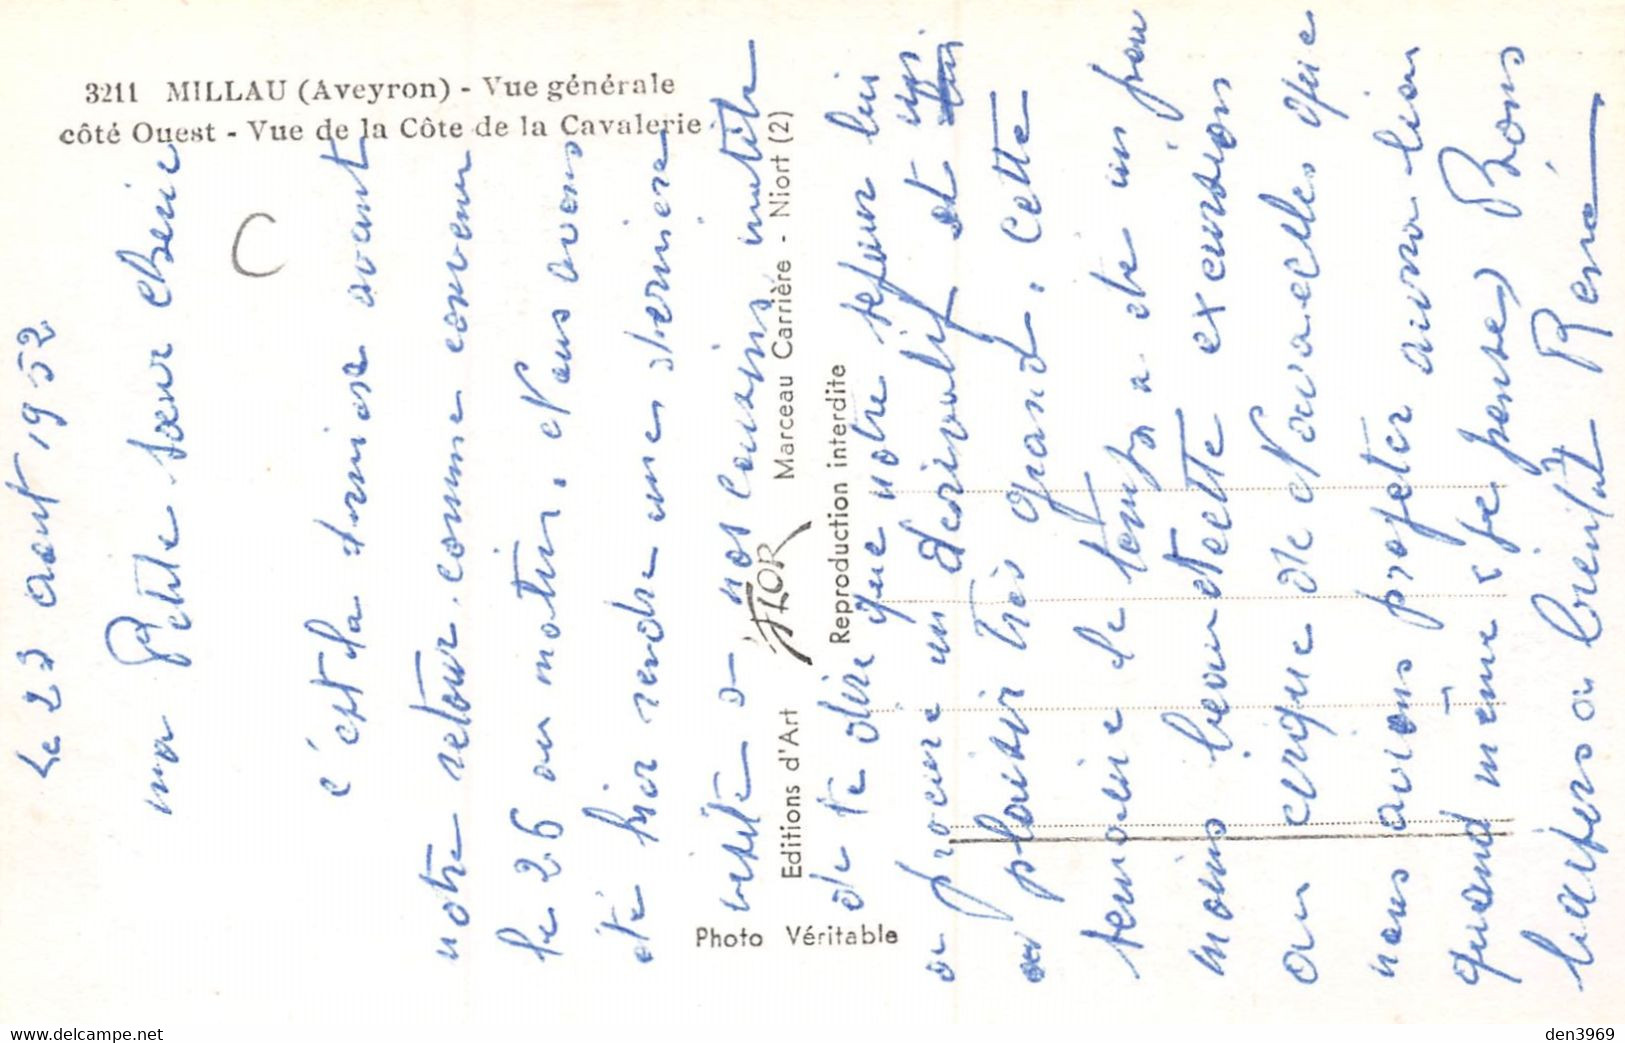 3211 MILLAU (Aveyron) - Vue générale
côté Ouest - Vue de la Côte de la Cavalerie
C
Le 23 aout 1952
ma Petite sœur cherie
c'est la derniere avant
notre retour comme convenu
le 26 au matin. Nous avons
été hier rendre une derniere
visite a nos cousins, inutile
de te dire que notre sejour lui
a procuré un derivatif et
a plaisir très grand. Cette
semaine le temps a été un peu
moins beau et cette excursion
au cirque de Navacelles que
nous avions projeter aura lieu
quand même (je pense) Bons
baisers a bientôt René
Photo Véritable
Editions d'Art JTOR Marceau Carrière - Niort (2)
Reproduction interdite
www.delcampe.net
den3969